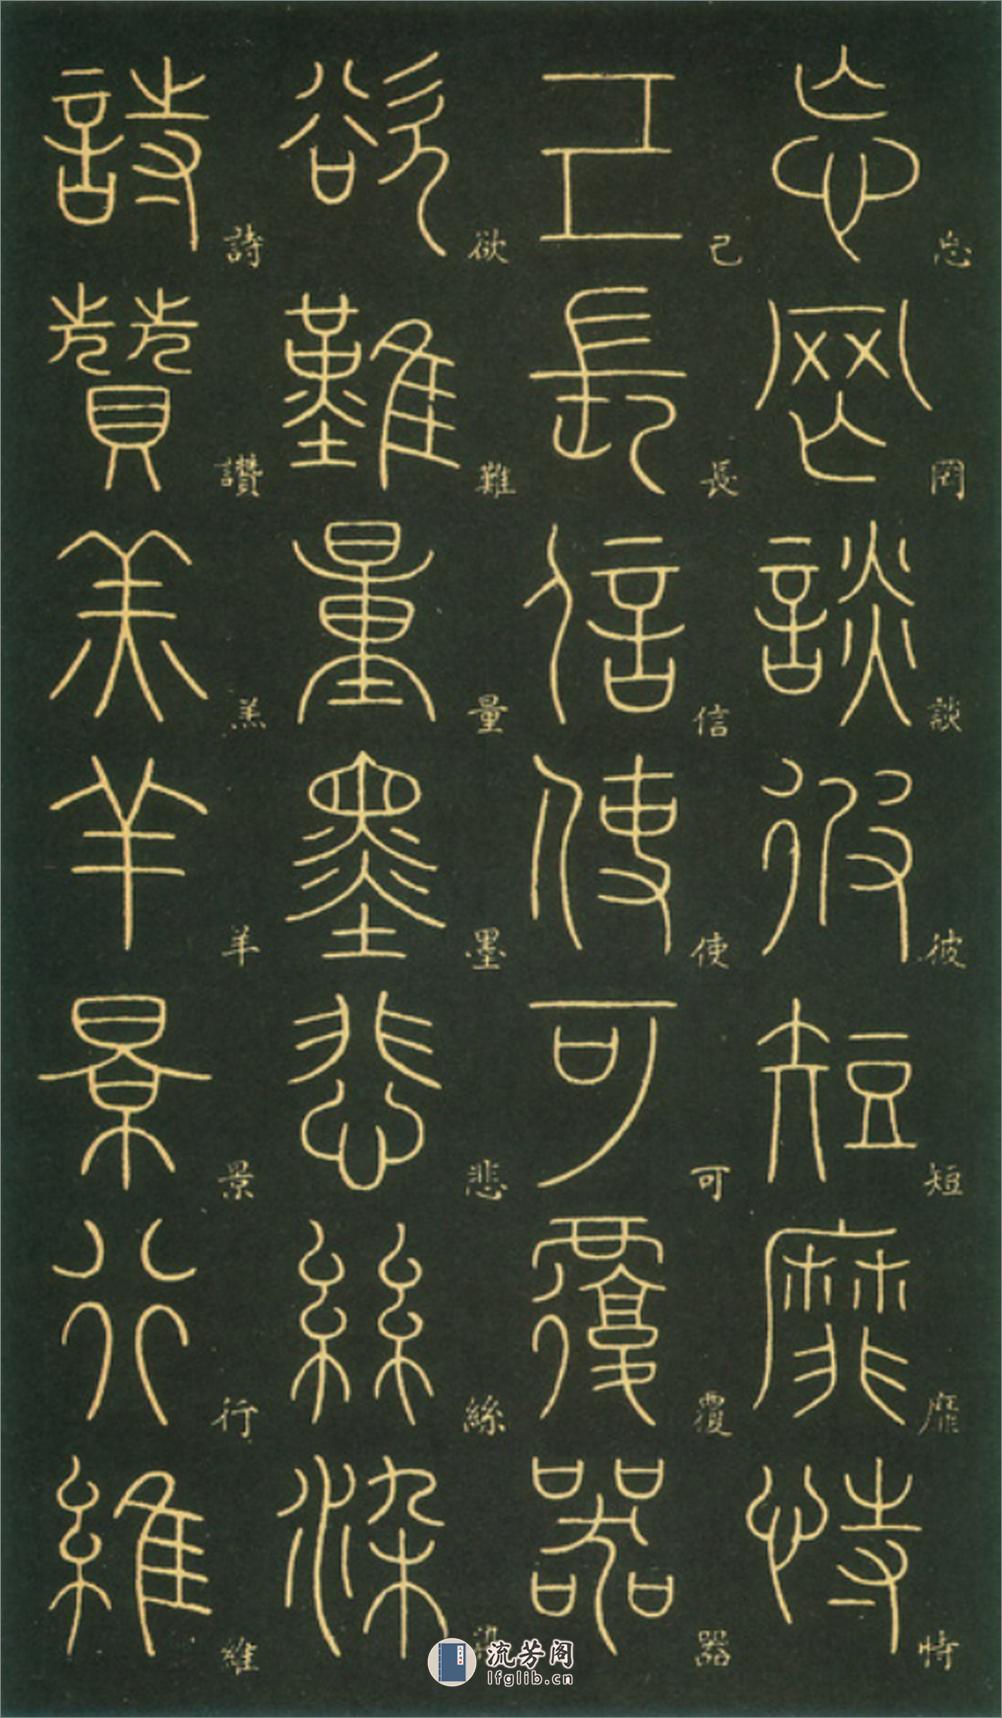 忘罔談彼短靡恃
己長信使可覆器
欲難量墨悲絲染
詩讚羔羊景行維
流芳阁
lfglib.cn